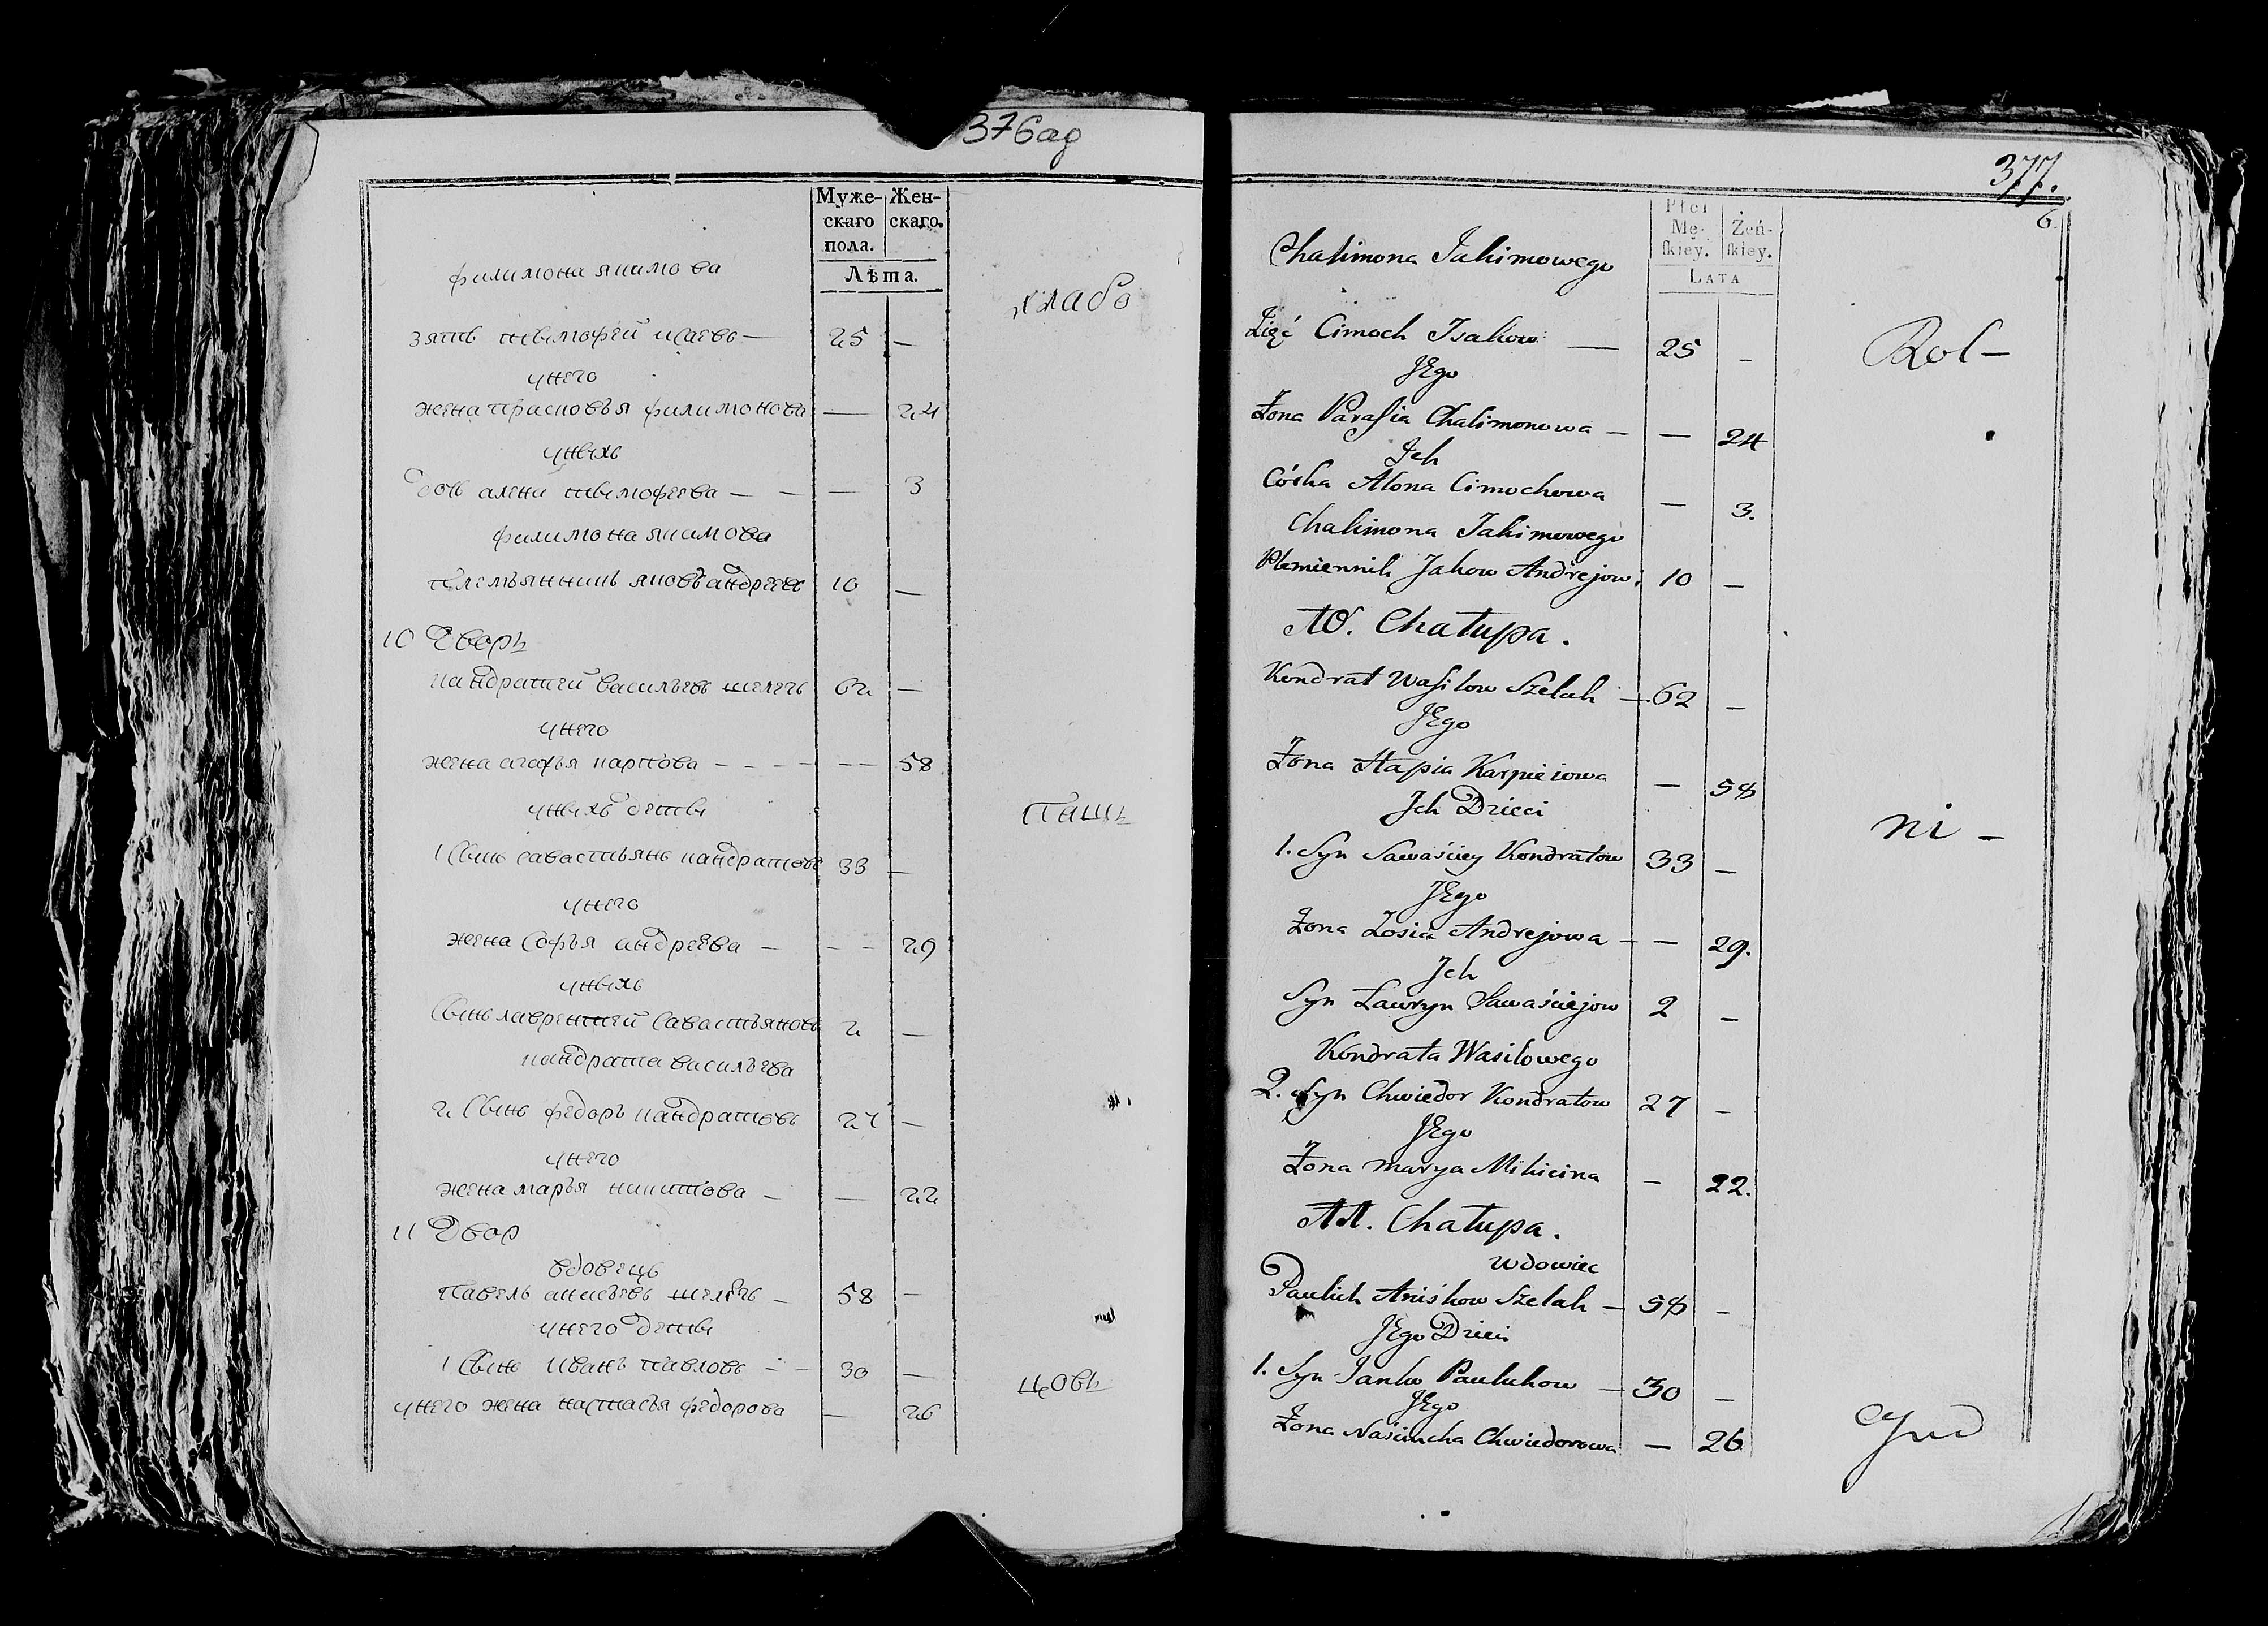 376ад
Муже-
скаго
пола.
Жен-
скаго.
Лѣта.
филимона якимова
хлабо
зять тимофей исаевъ — 25 —
унего
жена прасковья филимонова — 24
унихъ
дочь алена тимофеева — — — 3
филимона якимова
племянникъ яковъ андреевъ 10 —
10 Дворъ
кандратей васильевъ шелегъ 62 —
унего
жена агафья карпова - - - - — 58
унихъ дети
пашъ
1 сынъ савастьянъ кандратовъ 33 —
унего
жена софья андреева — - - 29
унихъ
сынъ лаврентей савастьяновъ 2 —
кандрата васильева
2 сынъ федоръ кандратовъ 27 —
унего
жена марья никитова — — 22
11 Двор
вдовецъ
павелъ анисьевъ шелегъ — 58 —
унего дети
1 сынъ иванъ павловъ — 30 —
цовъ
унего жена настасья федорова — 26
377.
6
Płci
Mę-
skiey.
Żeń-
skiey.
LATA
Chalimona Jakimowego
Zięć Cimoch Isakow — 25 —
Rol —
JEgo
Żona Parasia Chalimonowa — — 24
Ich
Córka Alona Cimochowa — 3.
Chalimona Jakimowego
Plemiennik Jakow Andrejow. 10 —
10. Chałupa.
Kondrat Wasilow Szelah — 62 —
JEgo
Żona Hapia Karpieiowa — 58
Ich Dzieci
ni —
1. Syn Sawaściey Kondratow 33 —
JEgo
Żona Zosia Andrejowa — — 29.
Ich
Syn Ławryn Sawaściejow 2 —
Kondrata Wasilowego
2. Syn Chwiedor Kondratow 27 —
JEgo
Żona Marya Mikicina — 22.
11. Chałupa.
Wdowiec
Pauluk Aniśkow Szelah — 58 —
JEgo Dzieci
1. Syn Janko Paulukow — 30 —
JEgo
Żona Naściucha Chwiedorowa — 26